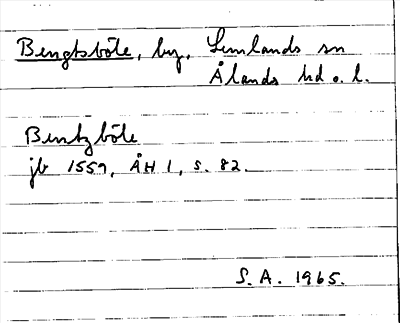 Bengtsböte, by, Lemlands sn
Ålands hd o. l.
Bentzböte
jb 1559, ÅH 1, s. 82.
S. A. 1965.